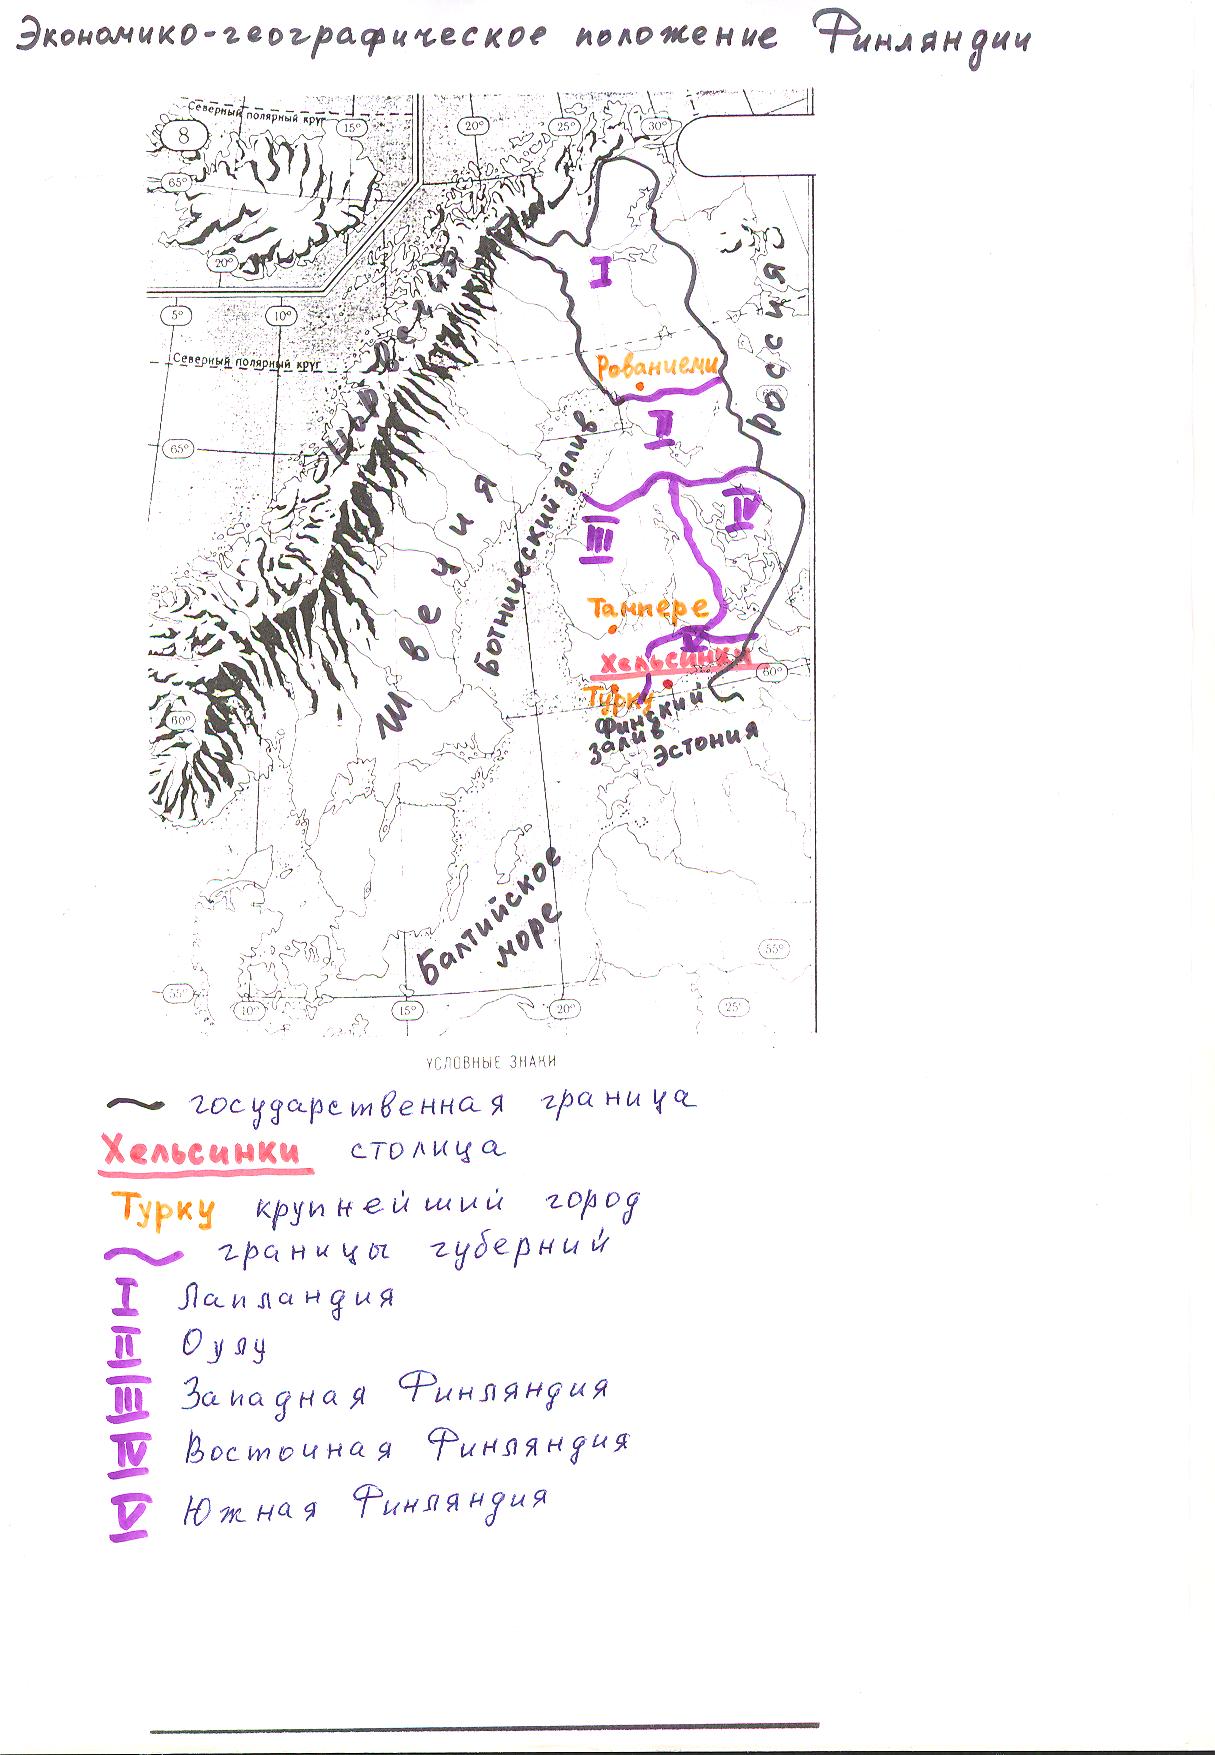 Экономико-географическое положение Финляндии
Северный полярный круг
15°
20°
25°
30°
8
65°
20°
5°
10°
Северный полярный круг
Норвегия
Россия
I
Рованиеми
II
65°
Швеция
Ботнический залив
III
IV
Тампере
V
Хельсинки
60°
Турку
60°
Финский
залив
Эстония
Балтийское
море
55°
55°
10°
15°
20°
25°
УСЛОВНЫЕ ЗНАКИ
государственная граница
Хельсинки столица
Турку крупнейший город
границы губерний
I Лапландия
II Оулу
III Западная Финляндия
IV Восточная Финляндия
V Южная Финляндия